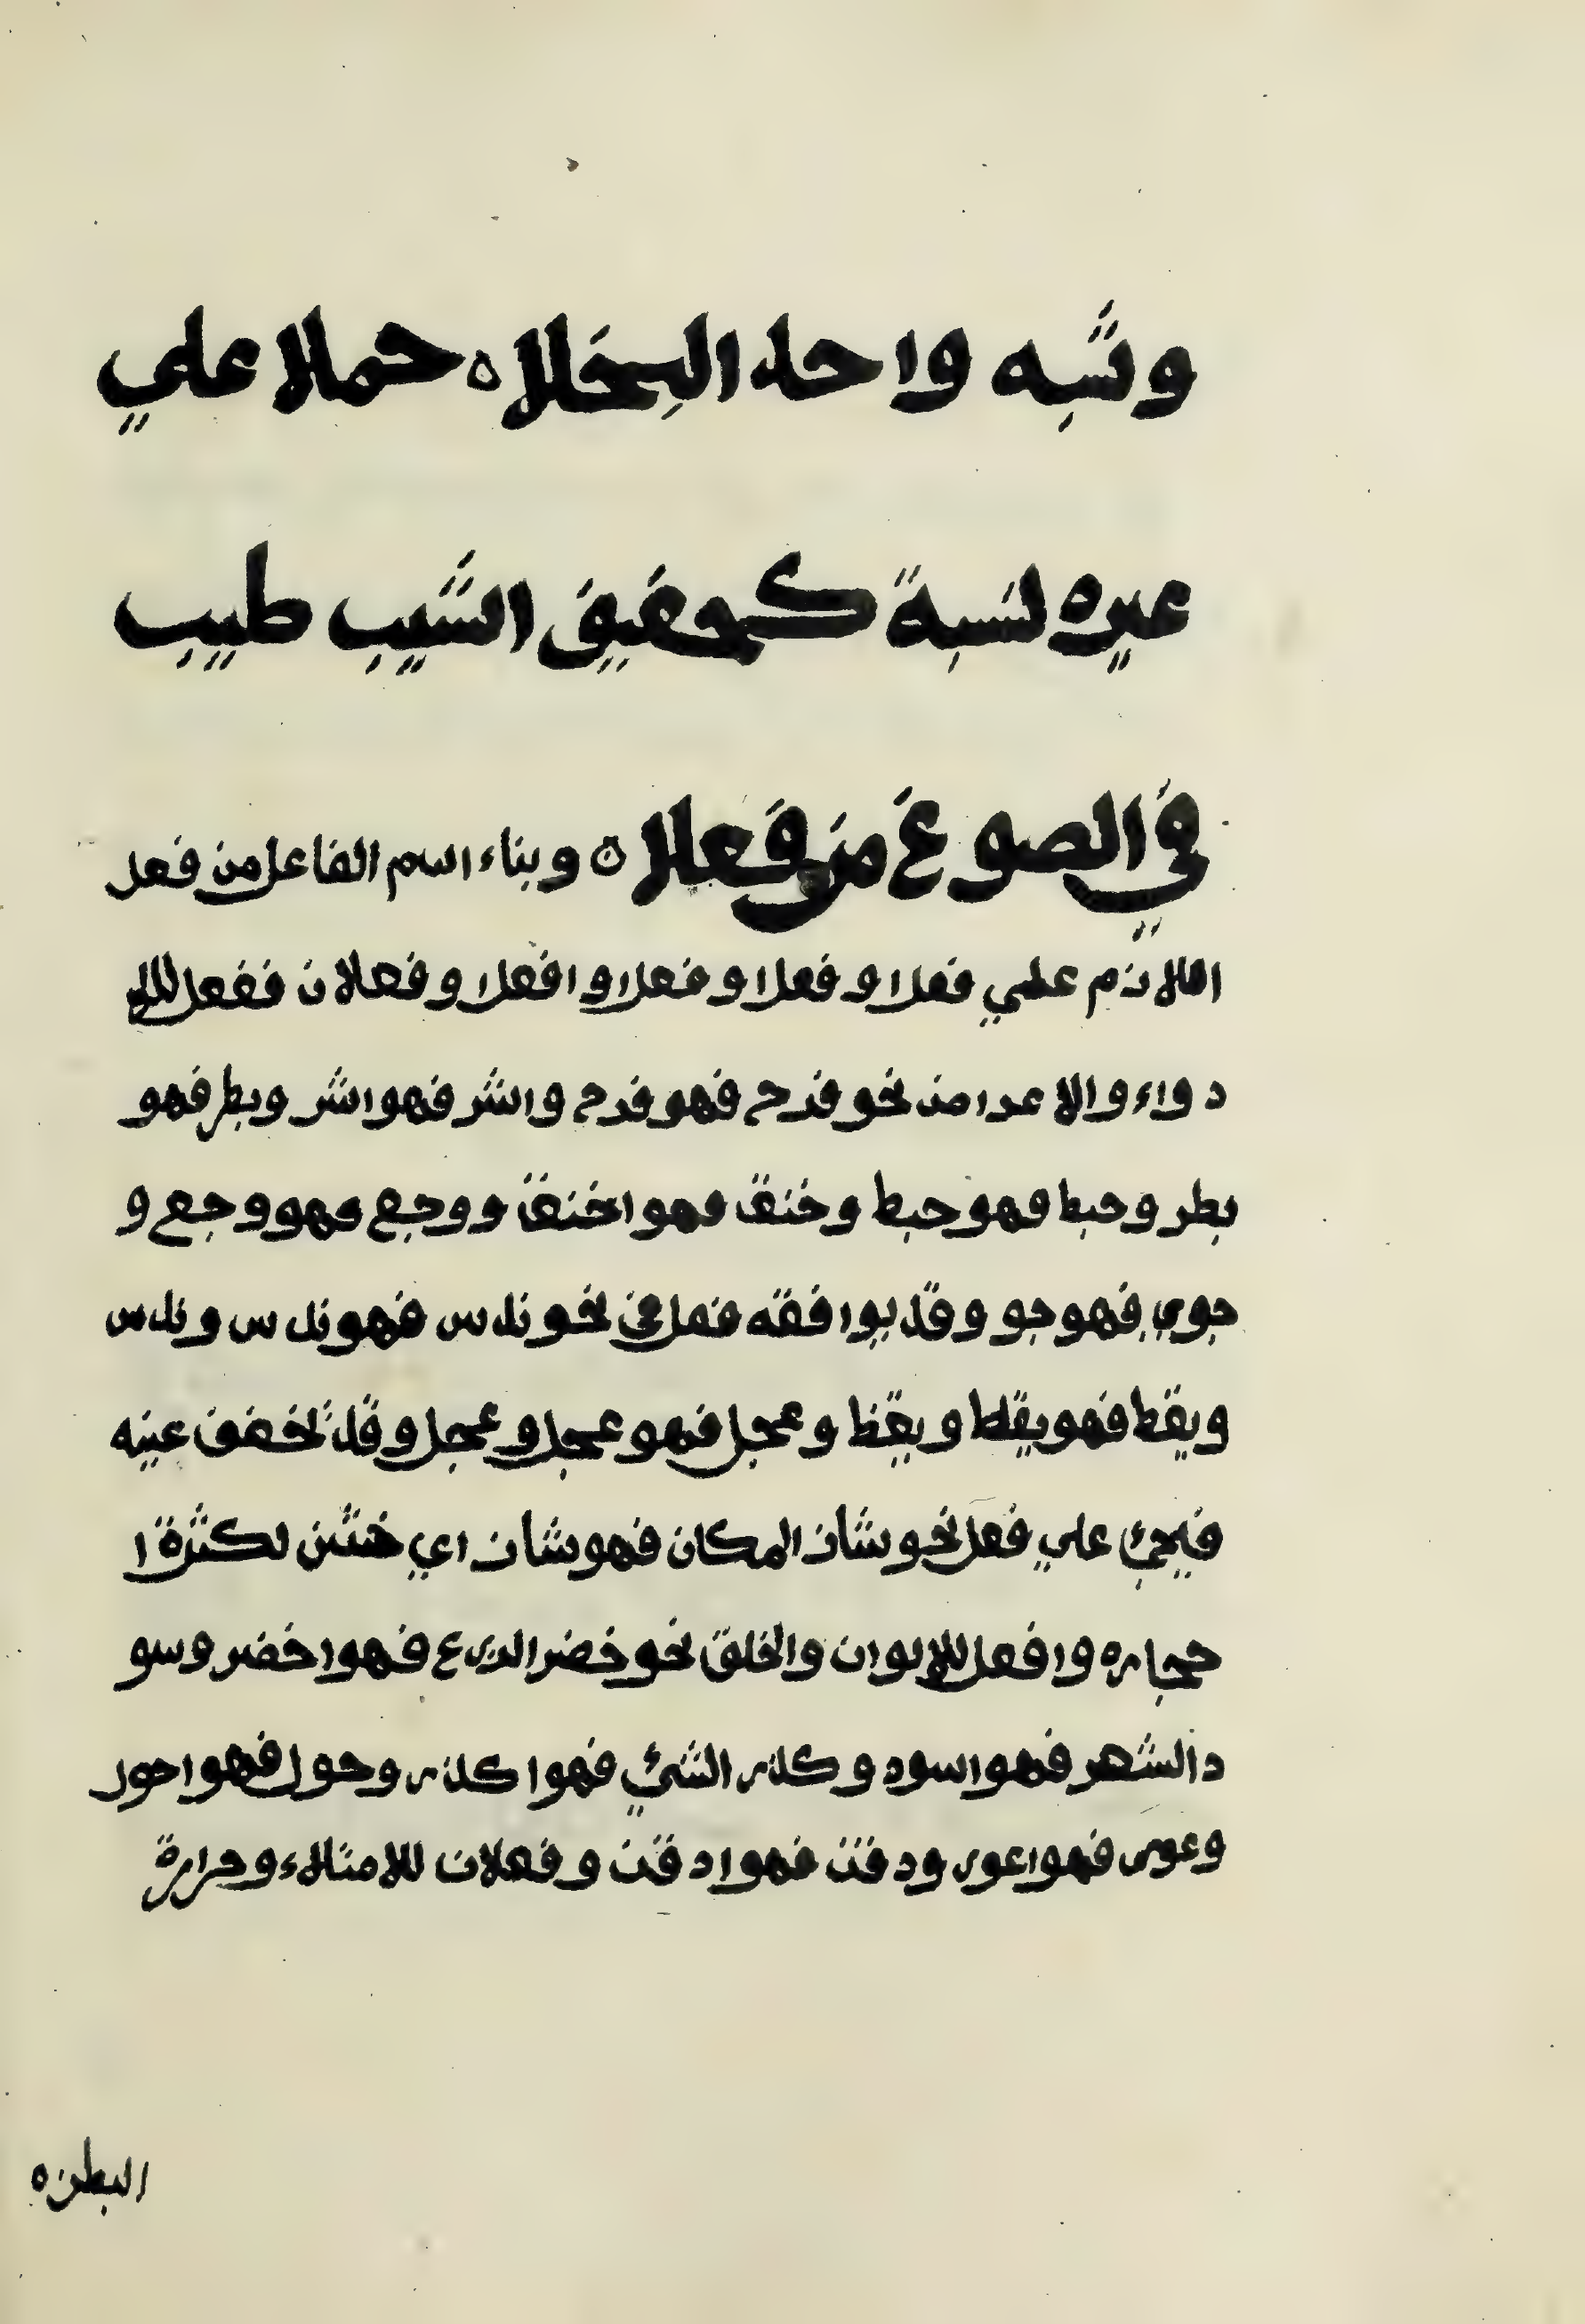 وشبه واحد البخلاه حملا علي
غيره لنسبة كحفيف الشيب طيب
في الصوغ من فعلا ن وبناء اسم الفاعل من فعل
اللازم علي فعل او فعل او فعل او افعل او فعلان ففعل للا
دواء والاعراض نحو فرح فهو فرح واشر فهو اشر وبطر فهو
بطر وحبط فهو حبط وخنق فهو اخنق ووجع فهو وجع و
جوي فهو جو وقد يوافقه فعل في نحو ندس فهو ندس وندس
ويقظ فهو يقظ ويقظ وعجل فهو عجل وعجل وقد تخفف عينه
فيجئ علي فعل نحو شاز المكان فهو شاز اي خشن لكثرة ا
حجاره وافعل للالوان والخلق نحو خضر الزرع فهو اخضر وسو
د الشهر فهو اسود وكدر الشئ فهو اكدر وحول فهو احول
وعور فهو اعور ودقن فهو ادقن وفعلان للامتلاء وحرارة
البطن ه